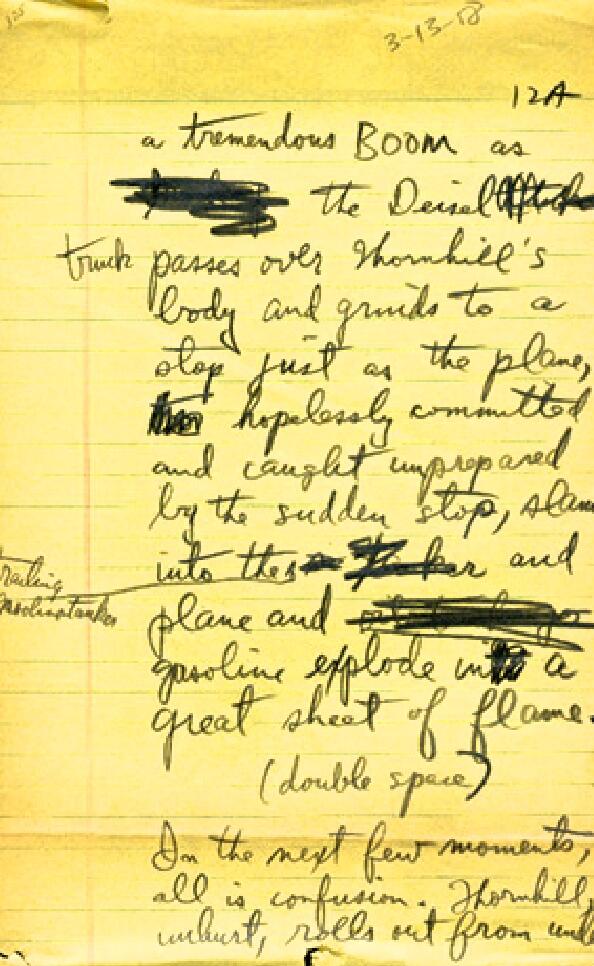 3-13-58
12A
a tremendous BOOM as
the Deisel
truck passes over Thornhill's
body and grinds to a
stop just as the plane,
hopelessly committed
and caught unprepared
by the sudden stop, slams
into the and
trailing
gasoline tanker
plane and
gasoline explode in a
great sheet of flame.
(double space)
In the next few moments,
all is confusion. Thornhill,
unhurt, rolls out from unde